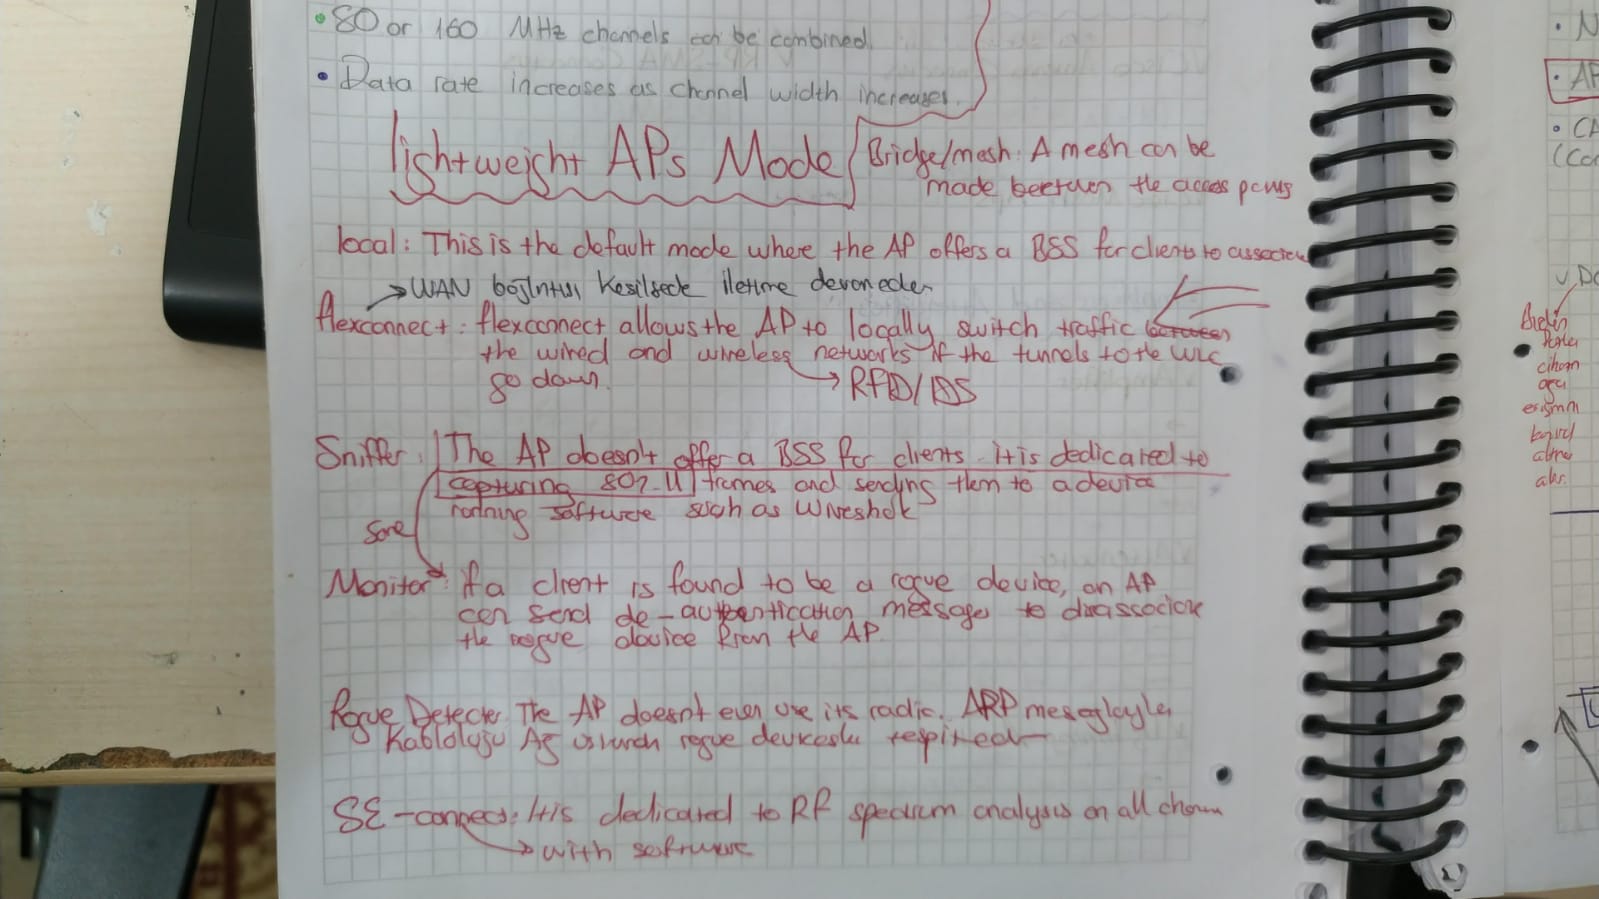 • 80 or 160 MHz channels can be combined.
• Data rate increases as channel width increases.
lightweight APs Mode
Bridge/mesh: A mesh can be
made between the access points
local: This is the default mode where the AP offers a BSS for clients to associate
→ WAN bağlntısı kesilsede iletime devam eder
flexconnect: flexconnect allows the AP to locally switch traffic between
the wired and wireless networks if the tunnels to the WLC
go down.
→ RFID/IDS
Sniffer: The AP doesn't offer a BSS for clients. it is dedicated to
capturing 802.11 frames and sending them to a device
running software such as Wireshark
Same
Monitor: if a client is found to be a rogue device, an AP
can send de-authentication messages to disassociate
the rogue device from the AP.
Rogue Detecter: The AP doesn't even use its radio. ARP
Kablolu Ağ rogue
SE-connect: It is dedicated to RF spectrum analysis on all
→ with software
• N
• AP
• CA